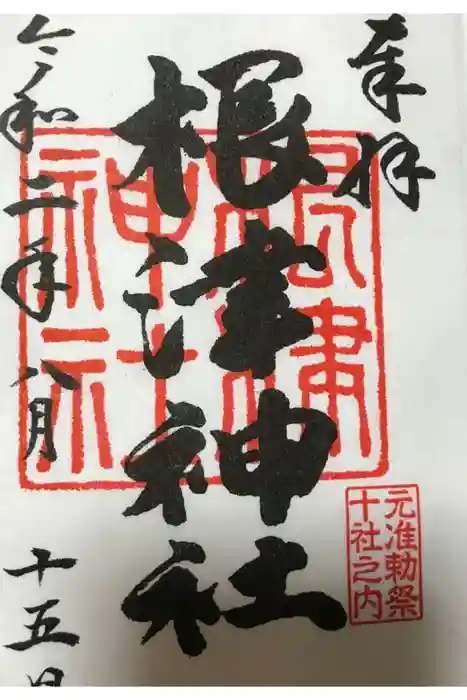 奉拝
根津神社
根津神社
元准勅祭
十社之内
令和二年八月十五日